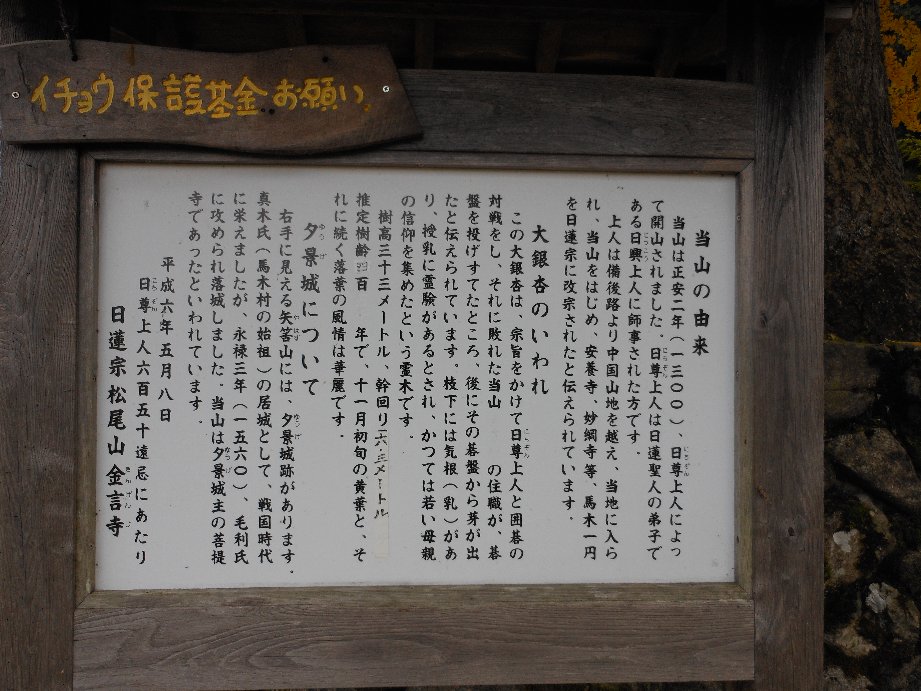 イチョウ保護基金お願い
当山の由来
当山は正安二年（一三〇〇）、日尊上人によっ
て開山されました。日尊上人は日蓮聖人の弟子で
ある日興上人に師事された方です。
上人は備後路より中国山地を越え、当地に入ら
れ、当山をはじめ、安養寺、妙綱寺等、馬木一円
を日蓮宗に改宗されたと伝えられています。
大銀杏のいわれ
この大銀杏は、宗旨をかけて日尊上人と囲碁の
対戦をし、それに敗れた当山 の住職が、碁
盤を投げすてたところ、後にその碁盤から芽が出
たと伝えられています。枝下には気根（乳）があ
り、授乳に霊験があるとされ、かつては若い母親
の信仰を集めたという霊木です。
樹高三十三メートル、幹回り六・三メートル
推定樹齢四百 年で、十一月初旬の黄葉と、そ
れに続く落葉の風情は華麗です。
夕景城について
右手に見える矢筈山には、夕景城跡があります。
真木氏（馬木村の始祖）の居城として、戦国時代
に栄えましたが、永禄三年（一五六〇）、毛利氏
に攻められ落城しました。当山は夕景城主の菩提
寺であったといわれています。
平成六年五月八日
日尊上人六百五十遠忌にあたり
日蓮宗松尾山金言寺